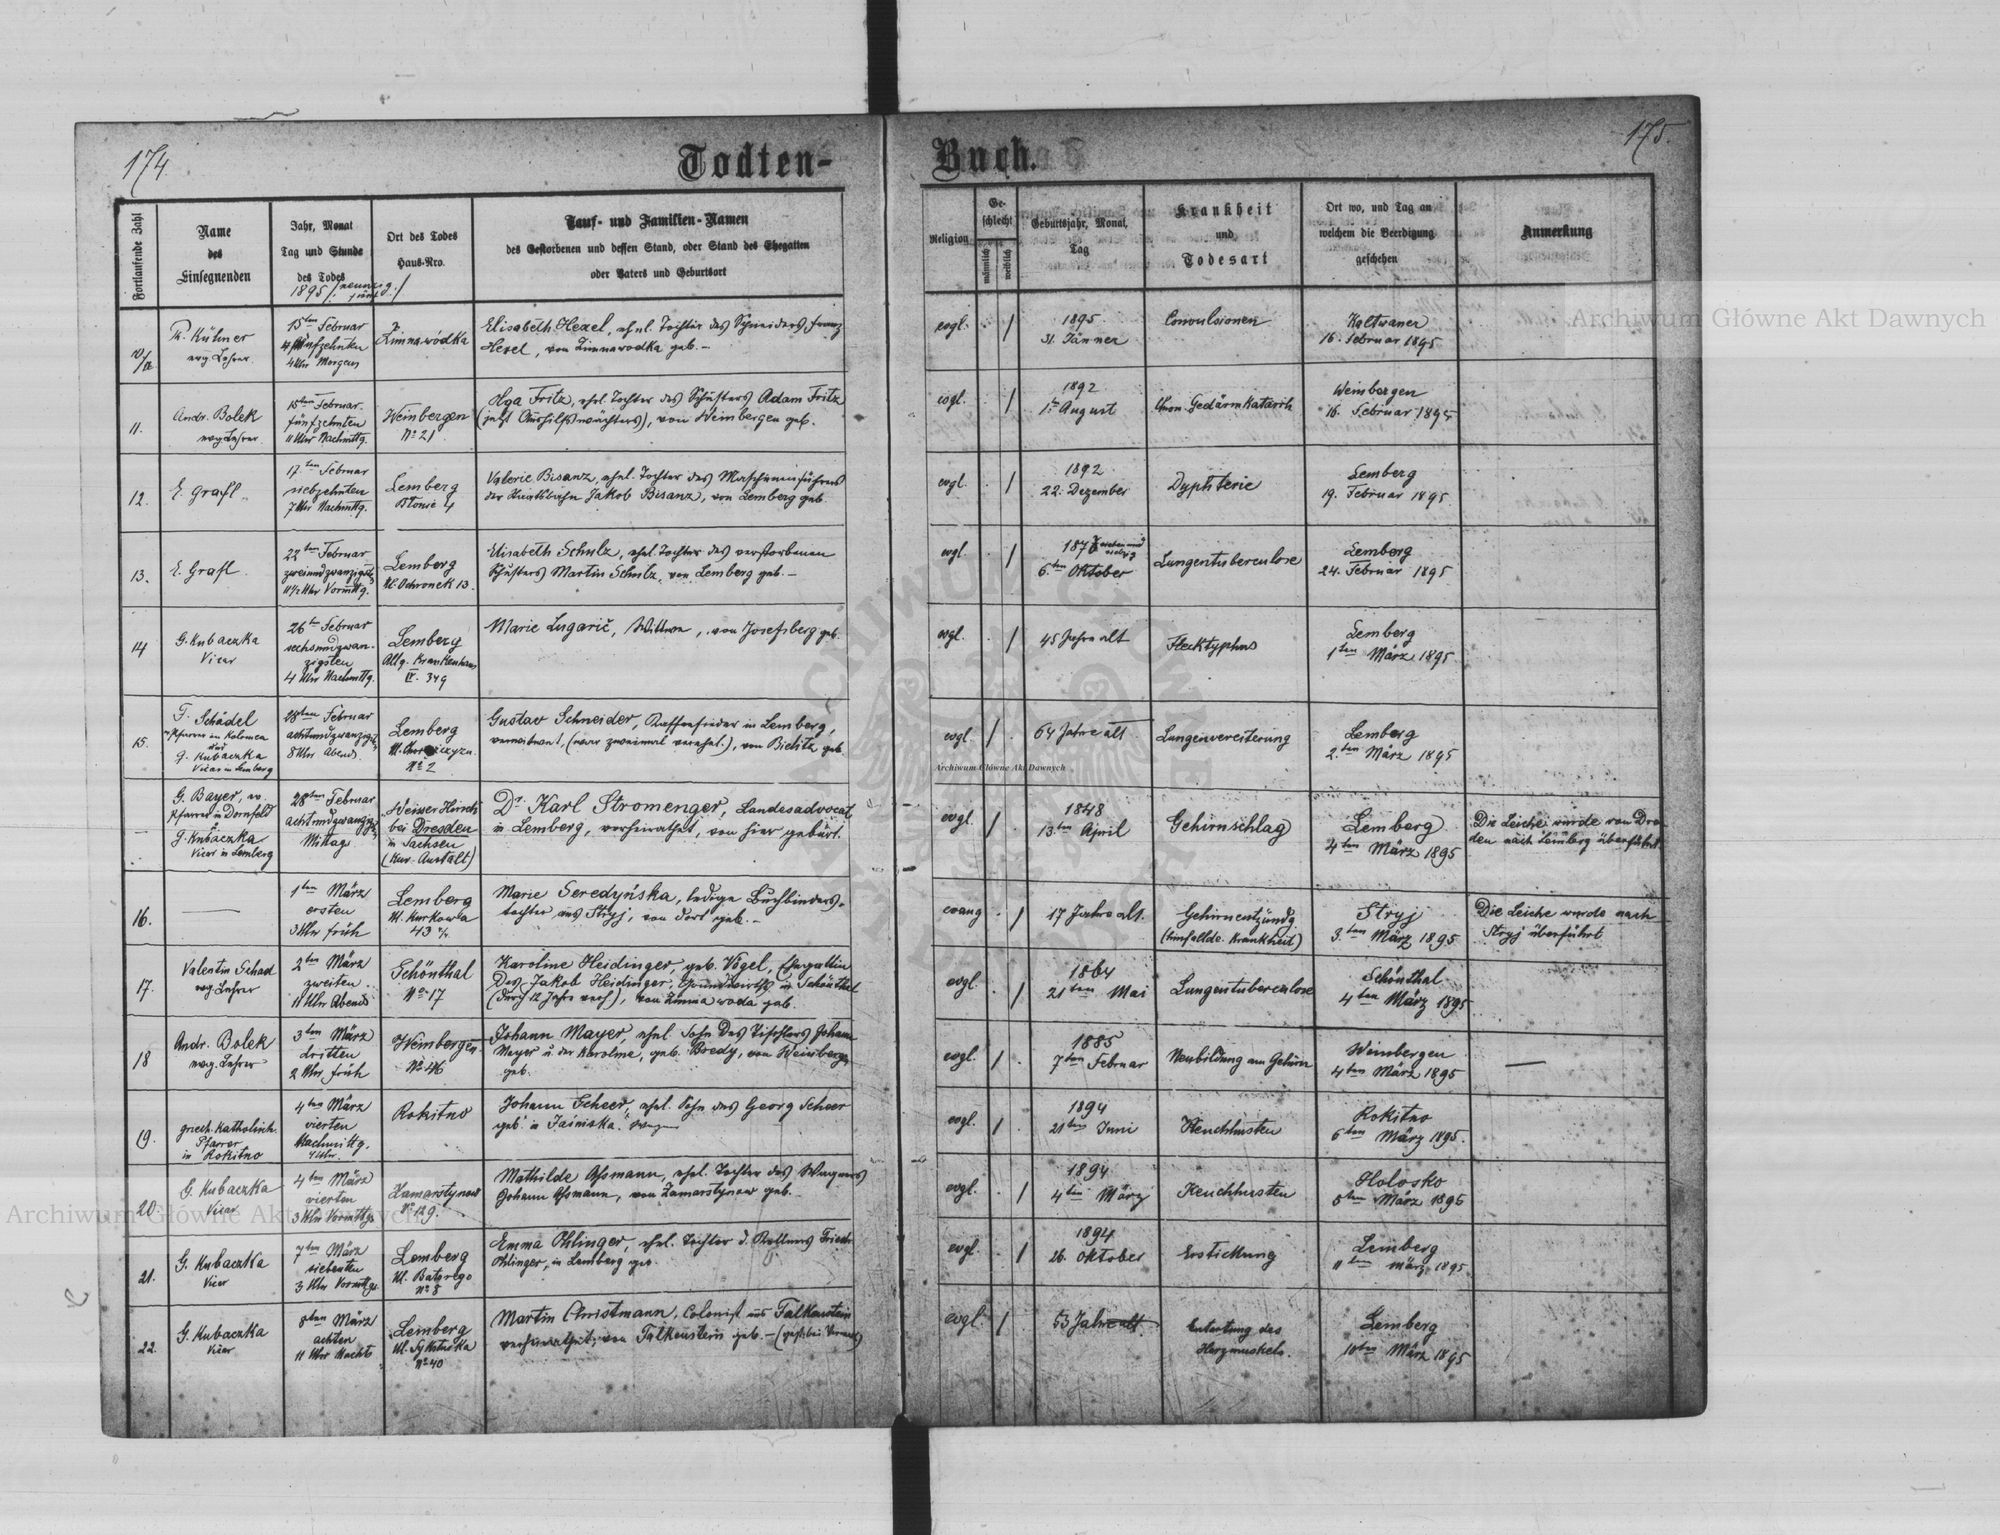 174.
Todten-
Buch.
175.
Fortlaufende Zahl
Name
des
Einsegnenden
Jahr, Monat
Tag und Stunde
des Todes
1895
Ort des Todes
Haus-Nro.
Tauf- und Familien-Namen
des Gestorbenen und dessen Stand, oder Stand des Ehegatten
oder Vaters und Geburtsort
Religion
Ge-
schlecht
männlich
weiblich
Geburtsjahr, Monat,
Tag
Krankheit
und
Todesart
Ort wo, und Tag an
welchem die Beerdigung
geschehen
Anmerkung
Kühner
evg. Lehrer
15ten Februar
4 Uhr Morgens
Zimnawódka
Elisabeth Hexel, ehel. Tochter des Schneiders Franz
Hexel, von Zimnawodka geb. –
evgl.
1895
31. Jänner
Convulsionen
16. Februar 1895
11.
Andr. Bolek
evg. Lehrer
15ten Februar
fünfzehnten
11 Uhr Nachmittg.
Weinbergen
No 21
Olga Fritz, ehel. Tochter des Schusters Adam Fritz
(jetzt Aushilfswächters), von Weinbergen geb.
evgl.
1892
1ten August
Chron. Gedärmkatarrh
Weinbergen
16. Februar 1895
12.
E. Grafl
17ten Februar
siebzehnten
7 Uhr Nachmittg.
Lemberg
Błonie 4
Valerie Bisanz, ehel. Tochter des Maschinenführers
der Staatsbahn Jakob Bisanz, von Lemberg geb.
evgl.
1892
22. Dezember
Dyphterie
Lemberg
19. Februar 1895
13.
E. Grafl.
22ten Februar
zweiundzwanzigsten
11½ Uhr Vormittg.
Lemberg
Ul. Ochronek 13.
Elisabeth Schulz, ehel. Tochter des verstorbenen
Schusters Martin Schulz, von Lemberg geb. –
evgl.
6ten Oktober
Lungentuberculose
Lemberg
24. Februar 1895
14
G. Kubaczka
Vicar
26ten Februar
sechsundzwan-
zigsten
4 Uhr Nachmittg.
Lemberg
Allg. Krankenhaus
IV. 349
Marie Lugarič, Wittwe, von Josefsberg geb.
evgl.
45 Jahre alt
Flecktyphus
Lemberg
1ten März 1895
15.
F. Schädel
Pfarrer in Kolomea
und
G. Kubaczka
Vicar in Lemberg
28ten Februar
achtundzwanzigst.
8 Uhr Abends
Lemberg
No 2
Gustav Schneider, Kaffeesieder in Lemberg,
verwitwet, (war zweimal verehel.), von Bielitz geb.
evgl.
64 Jahre alt
Lungenvereiterung
Lemberg
2ten März 1895
G. Bayer, ev.
Pfarrer in Dornfeld
G. Kubaczka
Vicar in Lemberg
28ten Februar
achtundzwanzigst.
Mittag
Weisser Hirsch
bei Dresden
in Sachsen
(Kur-Anstalt)
Dr Karl Stromenger, Landesadvocat
in Lemberg, verheirathet, von hier gebürt.
evgl.
1848
13ten April
Gehirnschlag
Lemberg
4ten März 1895
Die Leiche wurde von Dres-
den nach Lemberg überführt.
16.
1ten März
ersten
3 Uhr früh
Lemberg
Ul. Kurkowa
Marie Seredyńska, ledige Buchbinders-
tochter aus Stryj, von dort geb. –
evang
17 Jahre alt.
Gehirnentzündg.
(hinfallde. Krankheit)
Stryj
3ten März 1895
Die Leiche wurde nach
Stryj überführt
17.
Valentin Schad
evg. Lehrer
2ten März
zweiten
11 Uhr Abends
Schönthal
No 17
Karoline Heidinger, geb. Vogel, Ehegattin
des Jakob Heidinger, Grundwirths in Schönthal
von Zimnawoda geb.
evgl.
1864
21ten Mai
Lungentuberculose
Schönthal
4ten März 1895
18
Andr. Bolek
evg. Lehrer
3ten März
dritten
2 Uhr früh
Weinbergen
No 46
Johann Mayer, ehel. Sohn des Tischlers Johann
Mayer u. der Karoline, geb. Bredy, von Weinbergen
geb.
evgl.
1885
7ten Februar
Neubildung am Gehirn
Weinbergen
4ten März 1895
19.
griech. katholisch.
Pfarrer
in Rokitno
4ten März
vierten
Nachmittg.
4 Uhr.
Rokitno
Johann Scheer, ehel. Sohn des Georg Scheer
geb. in Jaśniska.
evgl.
1894
21ten Juni
Keuchhusten
Rokitno
6ten März 1895.
20.
G. Kubaczka
Vicar
4ten März
vierten
3 Uhr Vormittgs
Zamarstynow
No 129.
Mathilde Assmann, ehel. Tochter des Wagners
Johann Assmann, von Zamarstynow geb. –
evgl.
1894
4ten März
Keuchhusten
Holosko
März 1895
21.
G. Kubaczka
Vicar
7ten März
siebenten
3 Uhr Vormittgs
Lemberg
Ul. Batorego
No 8
Emma Ohlinger, ehel. Tochter d. Kellners Friedr.
Ohlinger, in Lemberg geb.
evgl.
1894
26. Oktober
Erstickung
Lemberg
11ten März 1895
22.
G. Kubaczka
Vicar
8ten März
achten
11 Uhr Nachts
Lemberg
Ul. Sykstuska
No 40
Martin Christmann, Colonist aus Falkenstein
verheirathet, von Falkenstein geb. –
evgl.
53 Jahre alt.
Entartung des
Herzmuskels.
Lemberg
10ten März 1895
Archiwum Główne Akt Dawnych
Archiwum Główne Akt Dawnych
Archiwum Główne Akt Dawnych